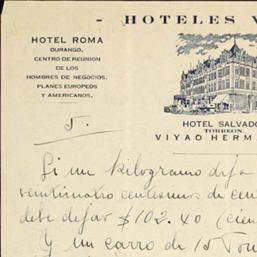 - HOTELES V
HOTEL ROMA
DURANGO.
CENTRO DE REUNION
DE LOS
HOMBRES DE NEGOCIOS.
PLANES EUROPEOS
Y AMERICANOS.
HOTEL SALVADO
TORREON.
VIYAO HERM
5.
Si un kilogramo deja
veinticuatro centesimos de cen
debe dejar $102.40 (cien
Y un carro de 15 Ton